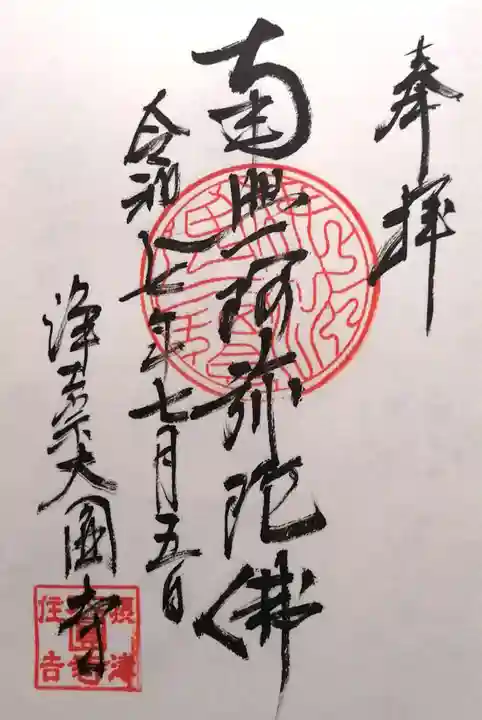 奉拝
南無阿弥陀佛
令和七年七月五日
淨土宗大圓寺
津
住吉